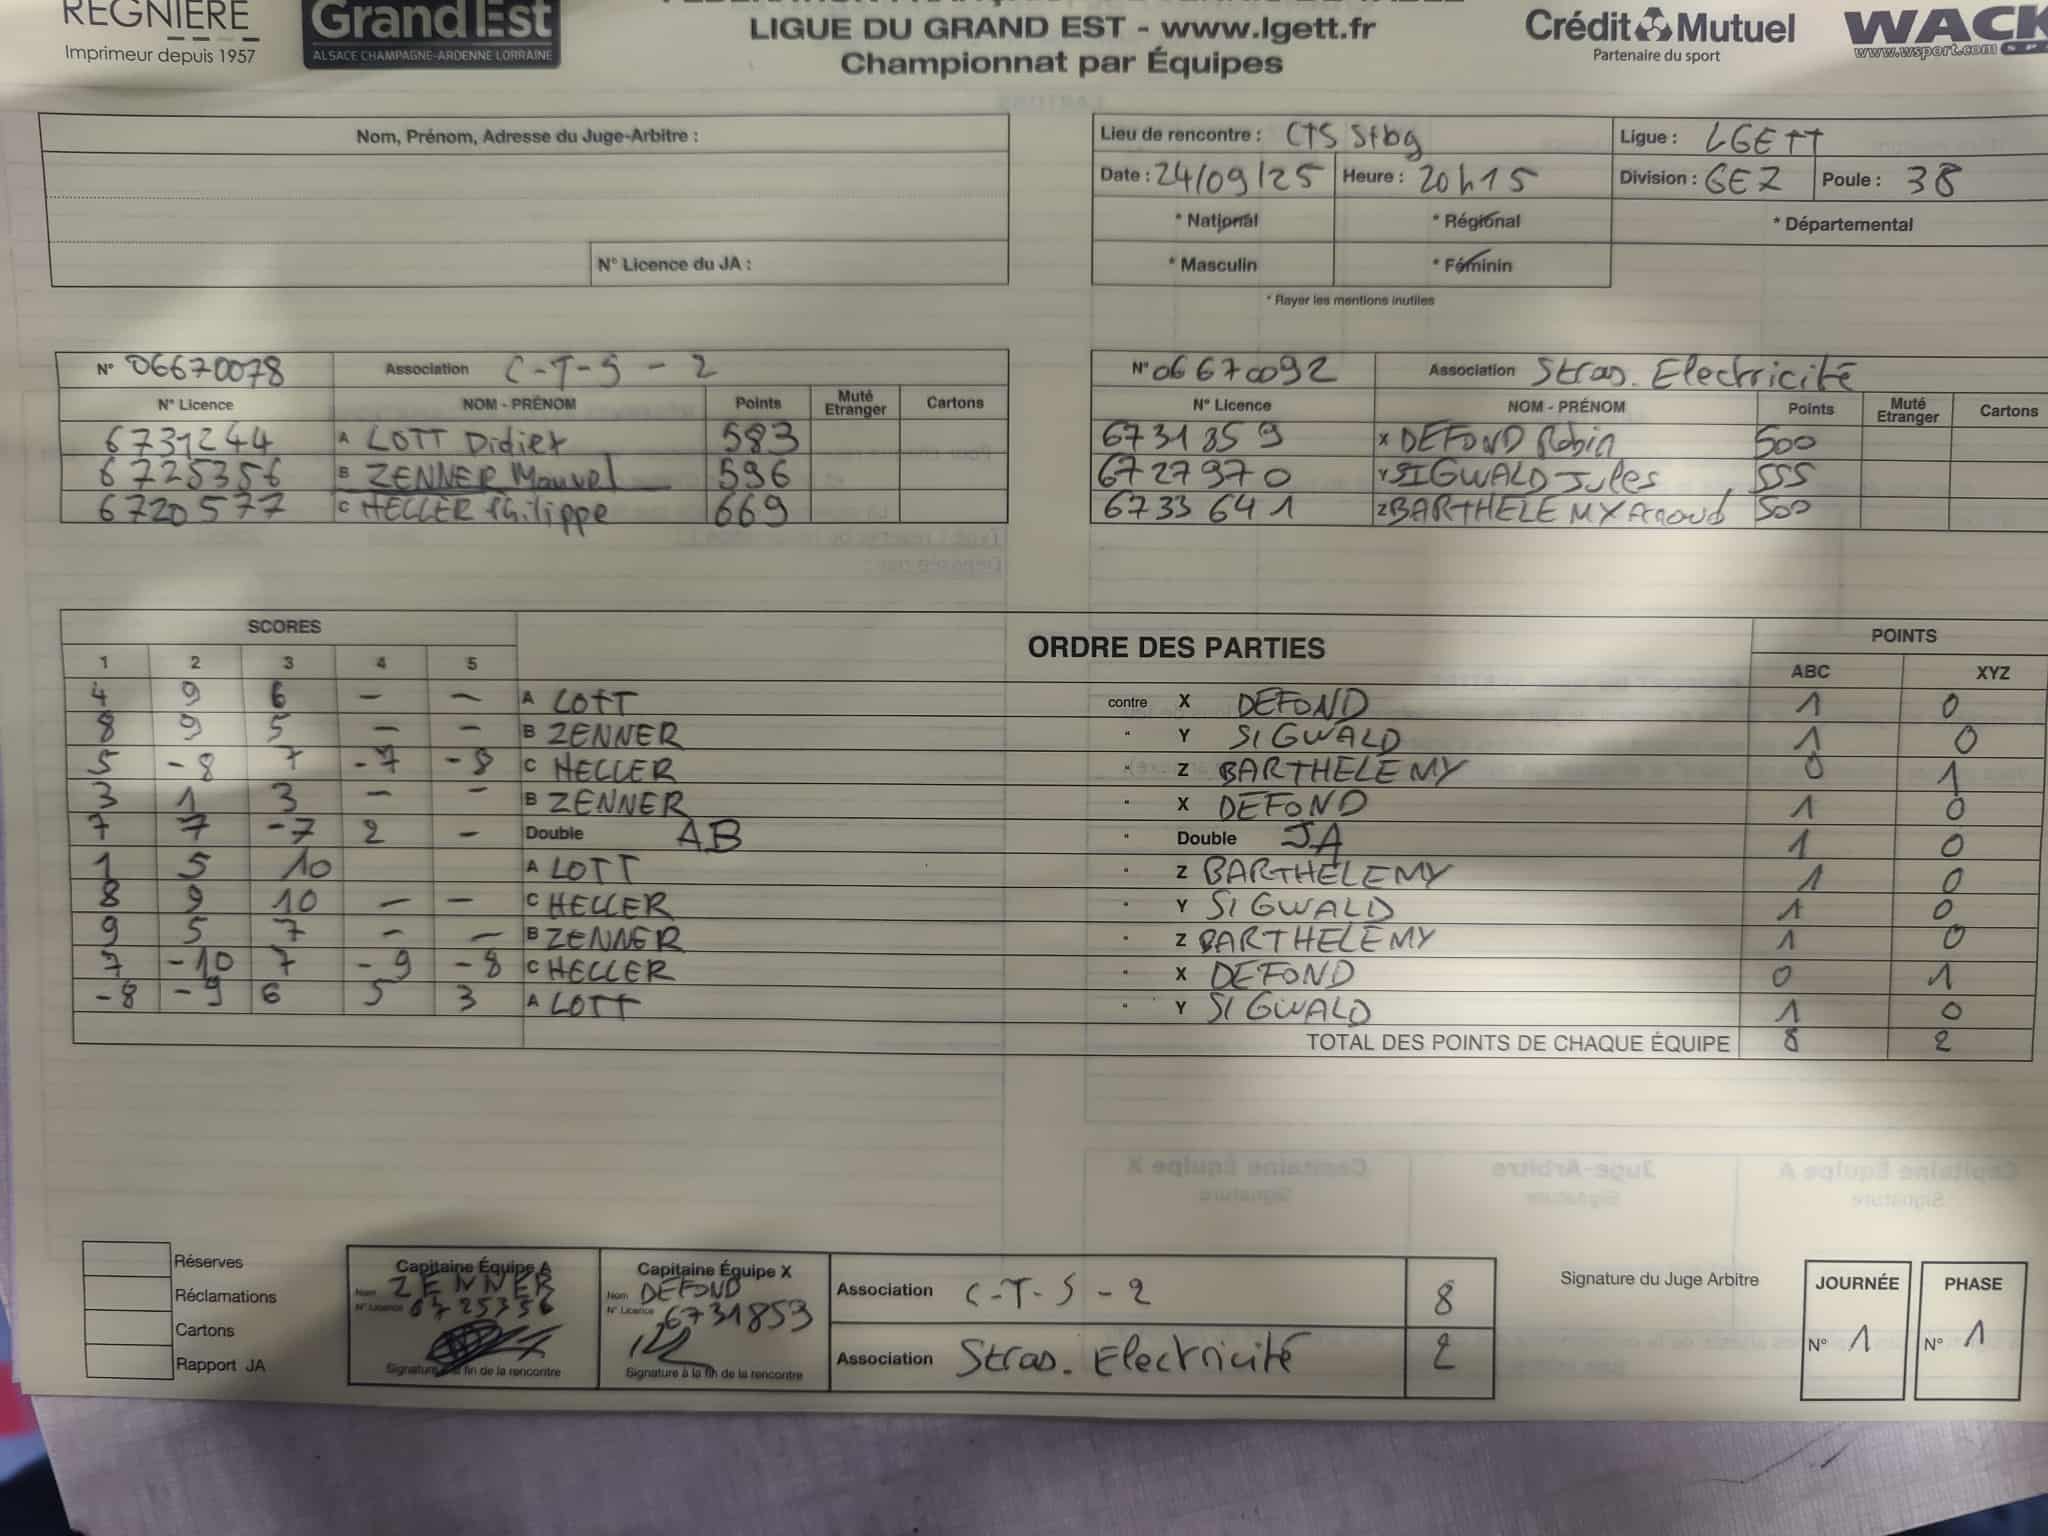 REGNIÈRE
Imprimeur depuis 1957
Grand Est
ALSACE CHAMPAGNE-ARDENNE LORRAINE
LIGUE DU GRAND EST - www.lgett.fr
Championnat par Équipes
Crédit Mutuel
Partenaire du sport
WACK
www.wsport.com
Nom, Prénom, Adresse du Juge-Arbitre :
N° Licence du JA :
Lieu de rencontre : CTS Stbg Ligue : LGETT
Date : 24/09/25 Heure : 20h15 Division : GE7 Poule : 38
* National * Régional * Départemental
* Masculin * Féminin
* Rayer les mentions inutiles
N° 06670078 Association C-T-S - 2
N° Licence NOM - PRÉNOM Points Muté Etranger Cartons
6731244 A LOTT Didier 583
6725356 B ZENNER Manuel 596
6720577 C HELLER Philippe 669
N° 06670092 Association Stras. Electricité
N° Licence NOM - PRÉNOM Points Muté Etranger Cartons
6731859 X DEFOND Robin 500
6727970 Y SIGWALD Jules 555
6733641 Z BARTHELEMY Arnoud 500
SCORES ORDRE DES PARTIES POINTS
1 2 3 4 5 ABC XYZ
4 9 6 - - A LOTT contre X DEFOND 1 0
8 9 5 - - B ZENNER " Y SIGWALD 1 0
5 -8 7 -7 -8 C HELLER " Z BARTHELEMY 0 1
3 1 3 - - B ZENNER " X DEFOND 1 0
7 7 -7 2 - Double AB " Double JA 1 0
1 5 10 A LOTT " Z BARTHELEMY 1 0
8 9 10 - - C HELLER " Y SIGWALD 1 0
9 5 7 - - B ZENNER " Z BARTHELEMY 1 0
7 -10 7 -9 -8 C HELLER " X DEFOND 0 1
-8 -9 6 5 3 A LOTT " Y SIGWALD 1 0
TOTAL DES POINTS DE CHAQUE ÉQUIPE 8 2
Réserves
Réclamations
Cartons
Rapport JA
Capitaine Équipe A
Nom ZENNER
N° Licence 6725356
Signature à la fin de la rencontre
Capitaine Équipe X
Nom DEFOND
N° Licence 6731859
Signature à la fin de la rencontre
Association C-T-S - 2 8
Association Stras. Electricité 2
Signature du Juge Arbitre
JOURNÉE
N° 1
PHASE
N° 1